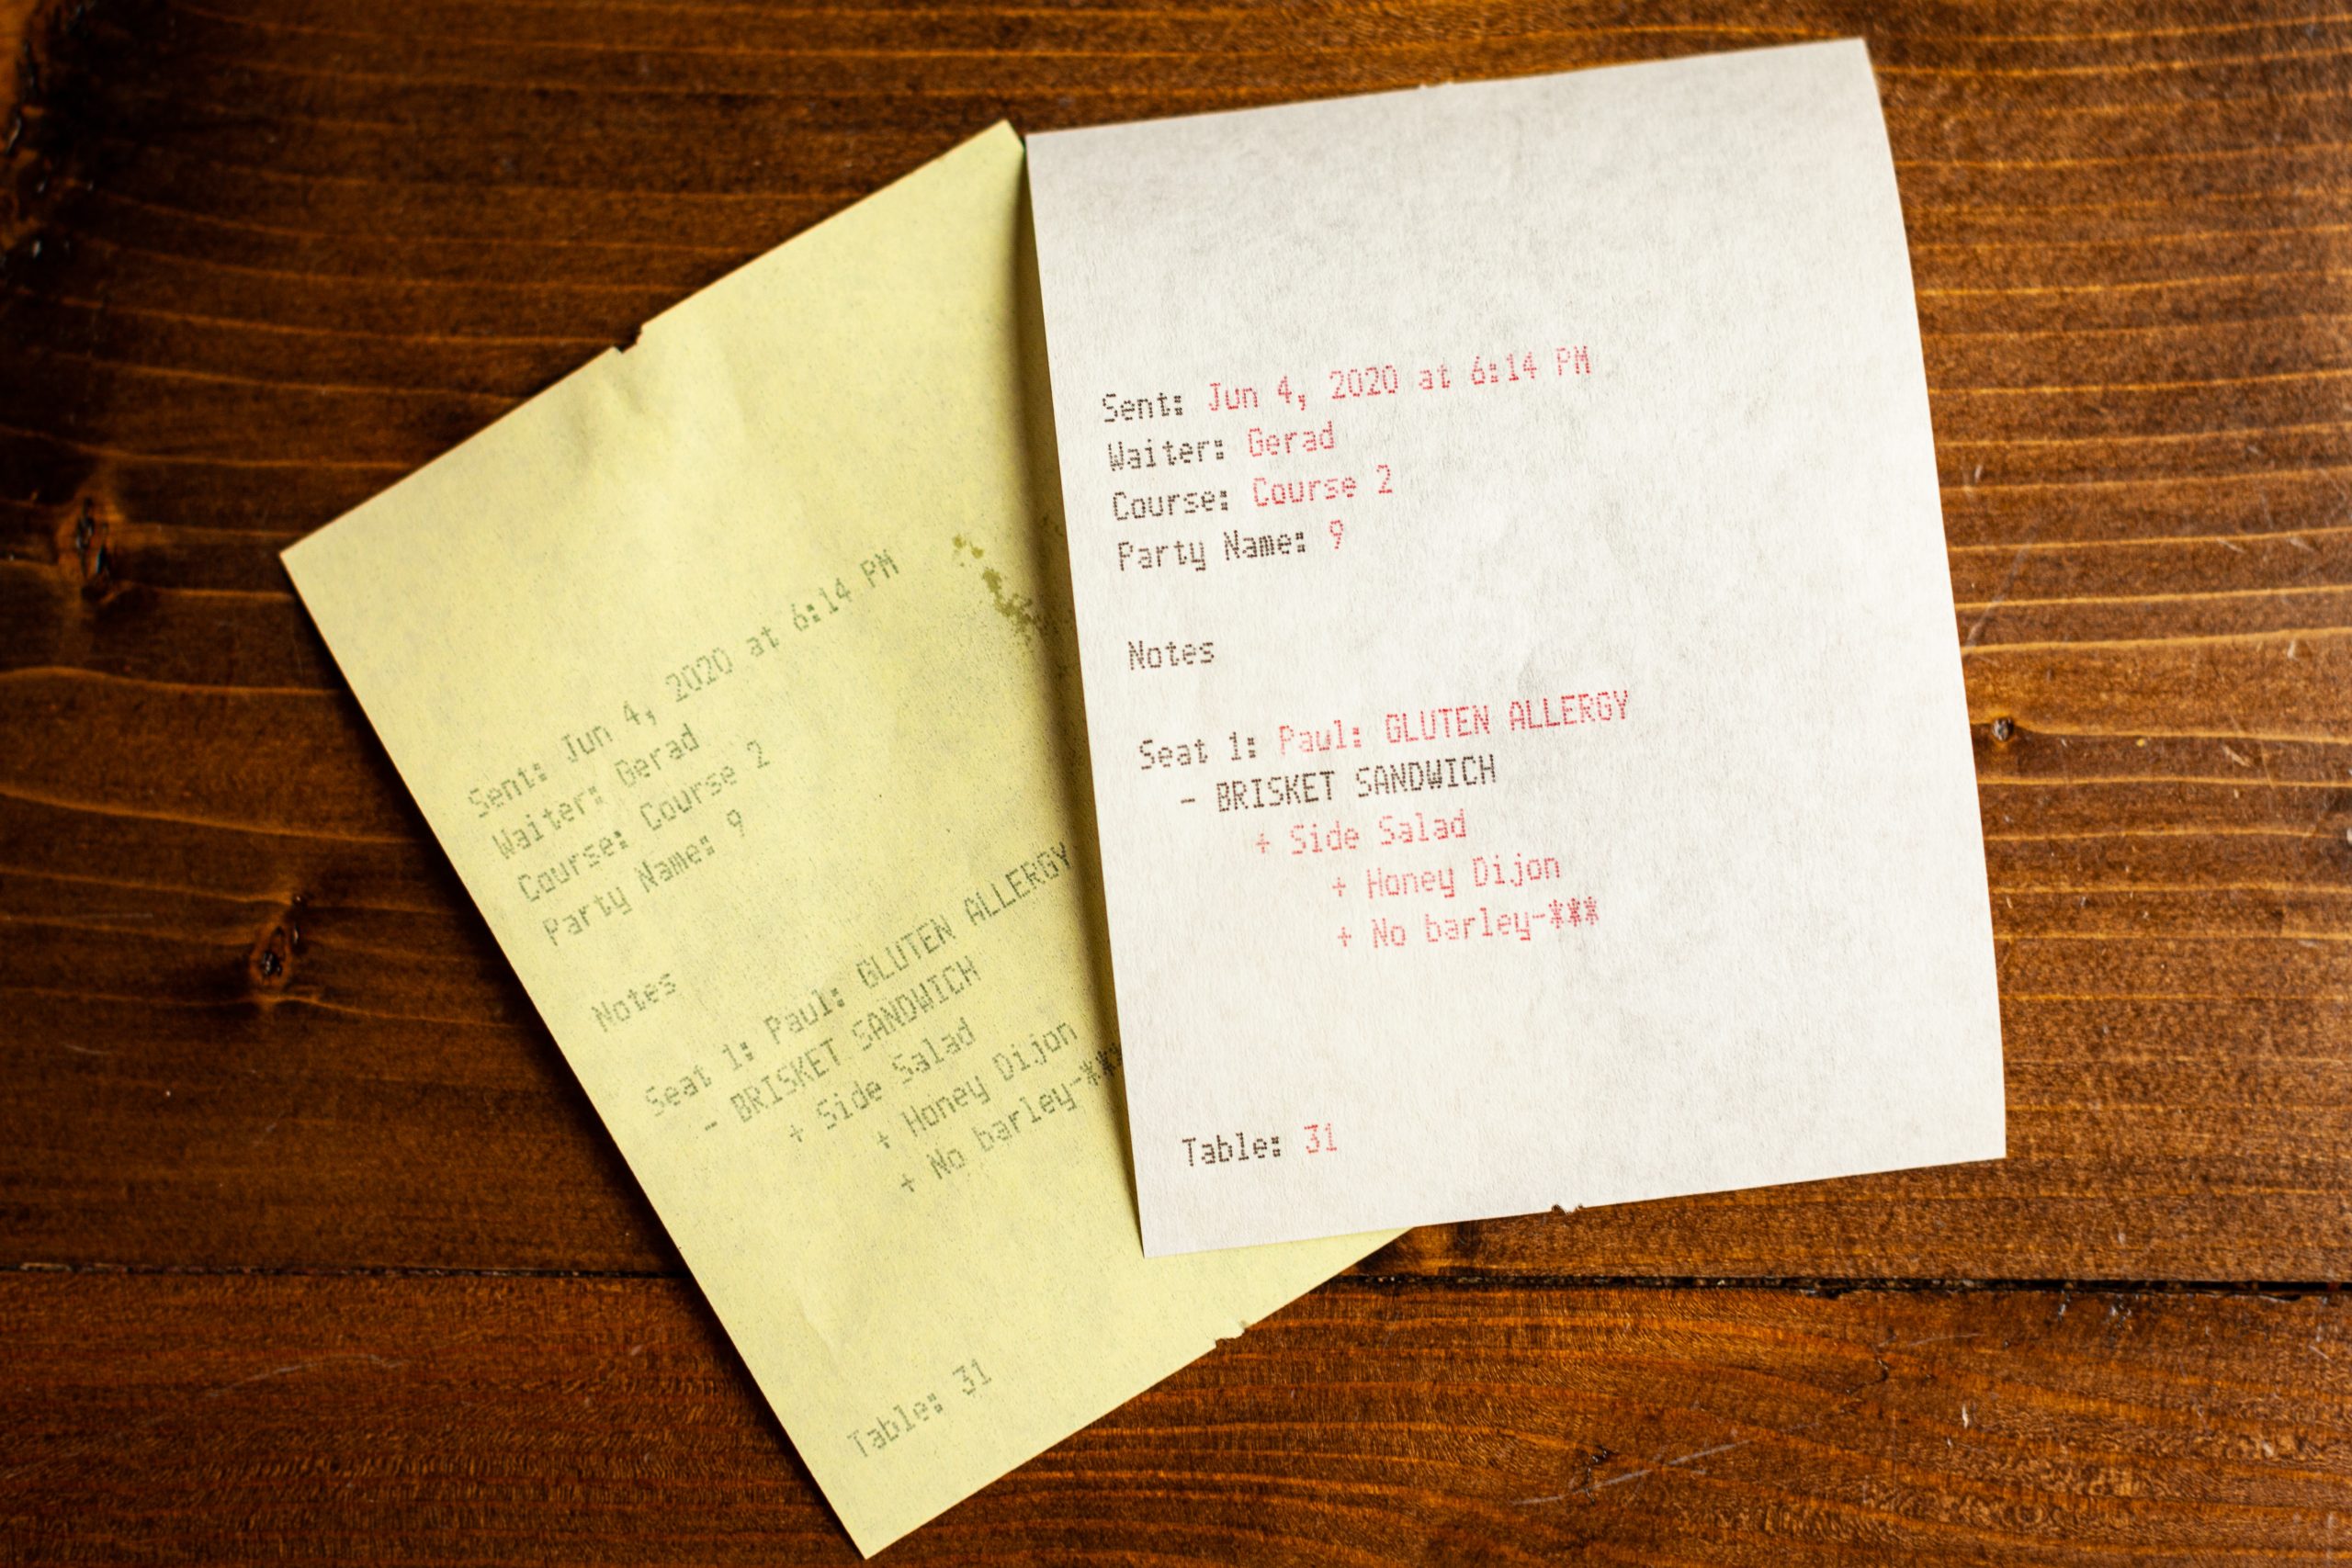 Sent: Jun 4, 2020 at 6:14 PM
Waiter: Gerad
Course: Course 2
Party Name: 9
Notes
Seat 1: Paul: GLUTEN ALLERGY
- BRISKET SANDWICH
+ Side Salad
+ Honey Dijon
+ No barley-***
Table: 31
Sent: Jun 4, 2020 at 6:14 PM
Waiter: Gerad
Course: Course 2
Party Name: 9
Notes
Seat 1: Paul: GLUTEN ALLERGY
- BRISKET SANDWICH
+ Side Salad
+ Honey Dijon
+ No barley-***
Table: 31